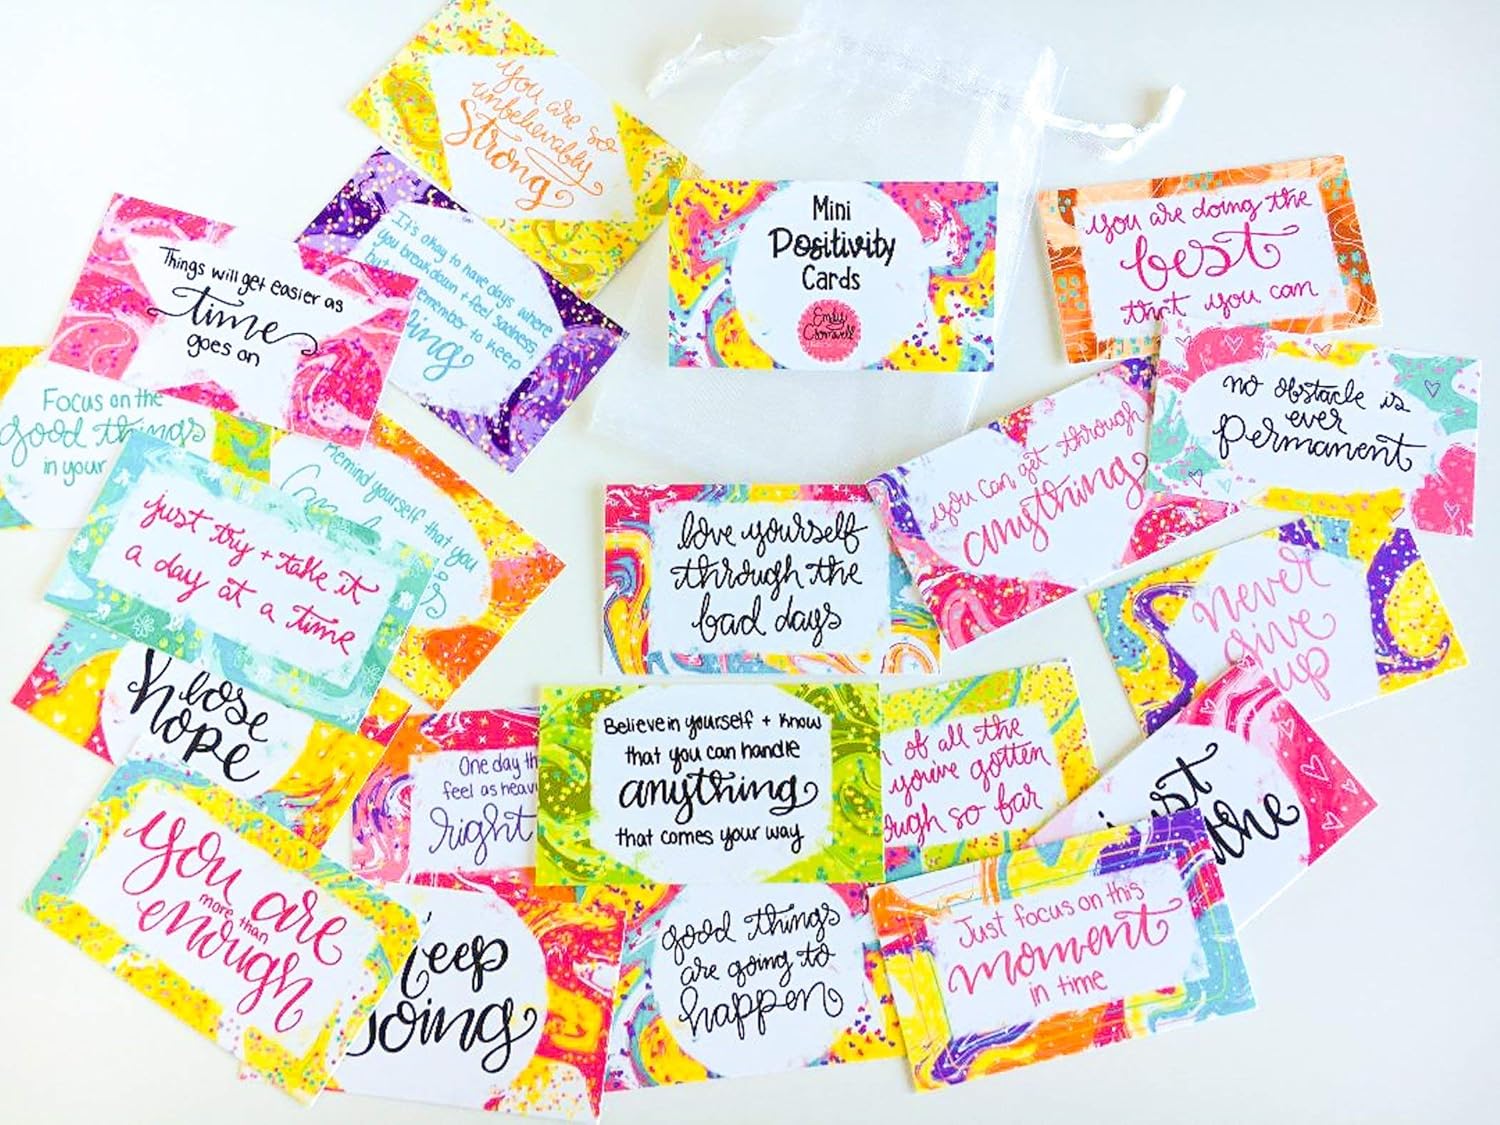 You are so
unbelievably
Strong
It's okay to have days where
you breakdown + feel sadness,
remember to keep
Things will get easier as
time
goes on
Mini
Positivity
Cards
Emily
Cromwell
you are doing the
best
that you can
no obstacle is
ever
permanent
you can get through
anything
Focus on the
good things
in your
Remind yourself that you
just try + take it
a day at a time
love yourself
through the
bad days
never
give
up
lose
hope
One day
feel as
right
Believe in yourself + know
that you can handle
anything
that comes your way
of all the
you've gotten
so far
just
You are
more than
enough
keep
going
good things
are going to
happen
Just focus on this
moment
in time